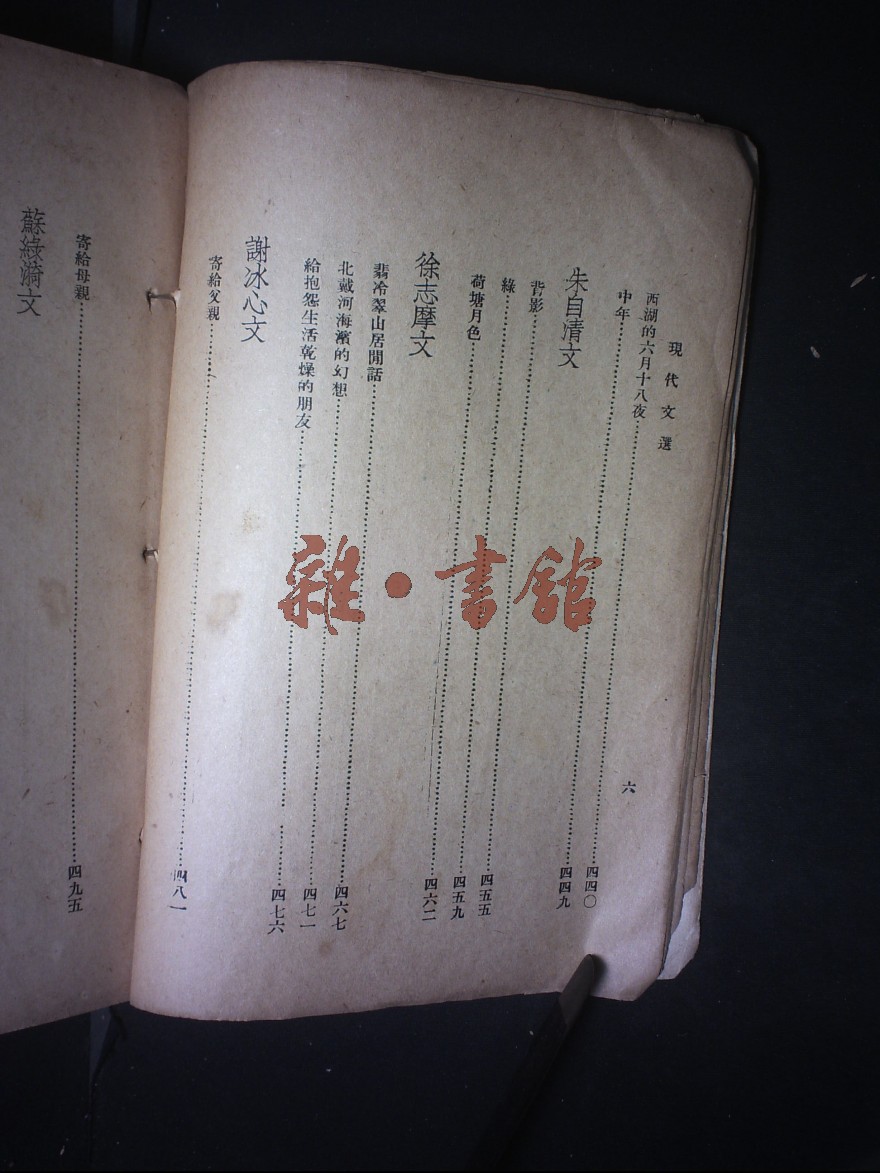 現代文選
六
西湖的六月十八夜……四四〇
中年……四四九
朱自清文
背影……四五五
綠……四五九
荷塘月色……四六二
徐志摩文
翡冷翠山居閒話……四六七
北戴河海濱的幻想……四七一
給抱怨生活乾燥的朋友……四七六
謝冰心文
寄給父親……四八一
寄給母親……四九五
蘇綠漪文
雜·書館